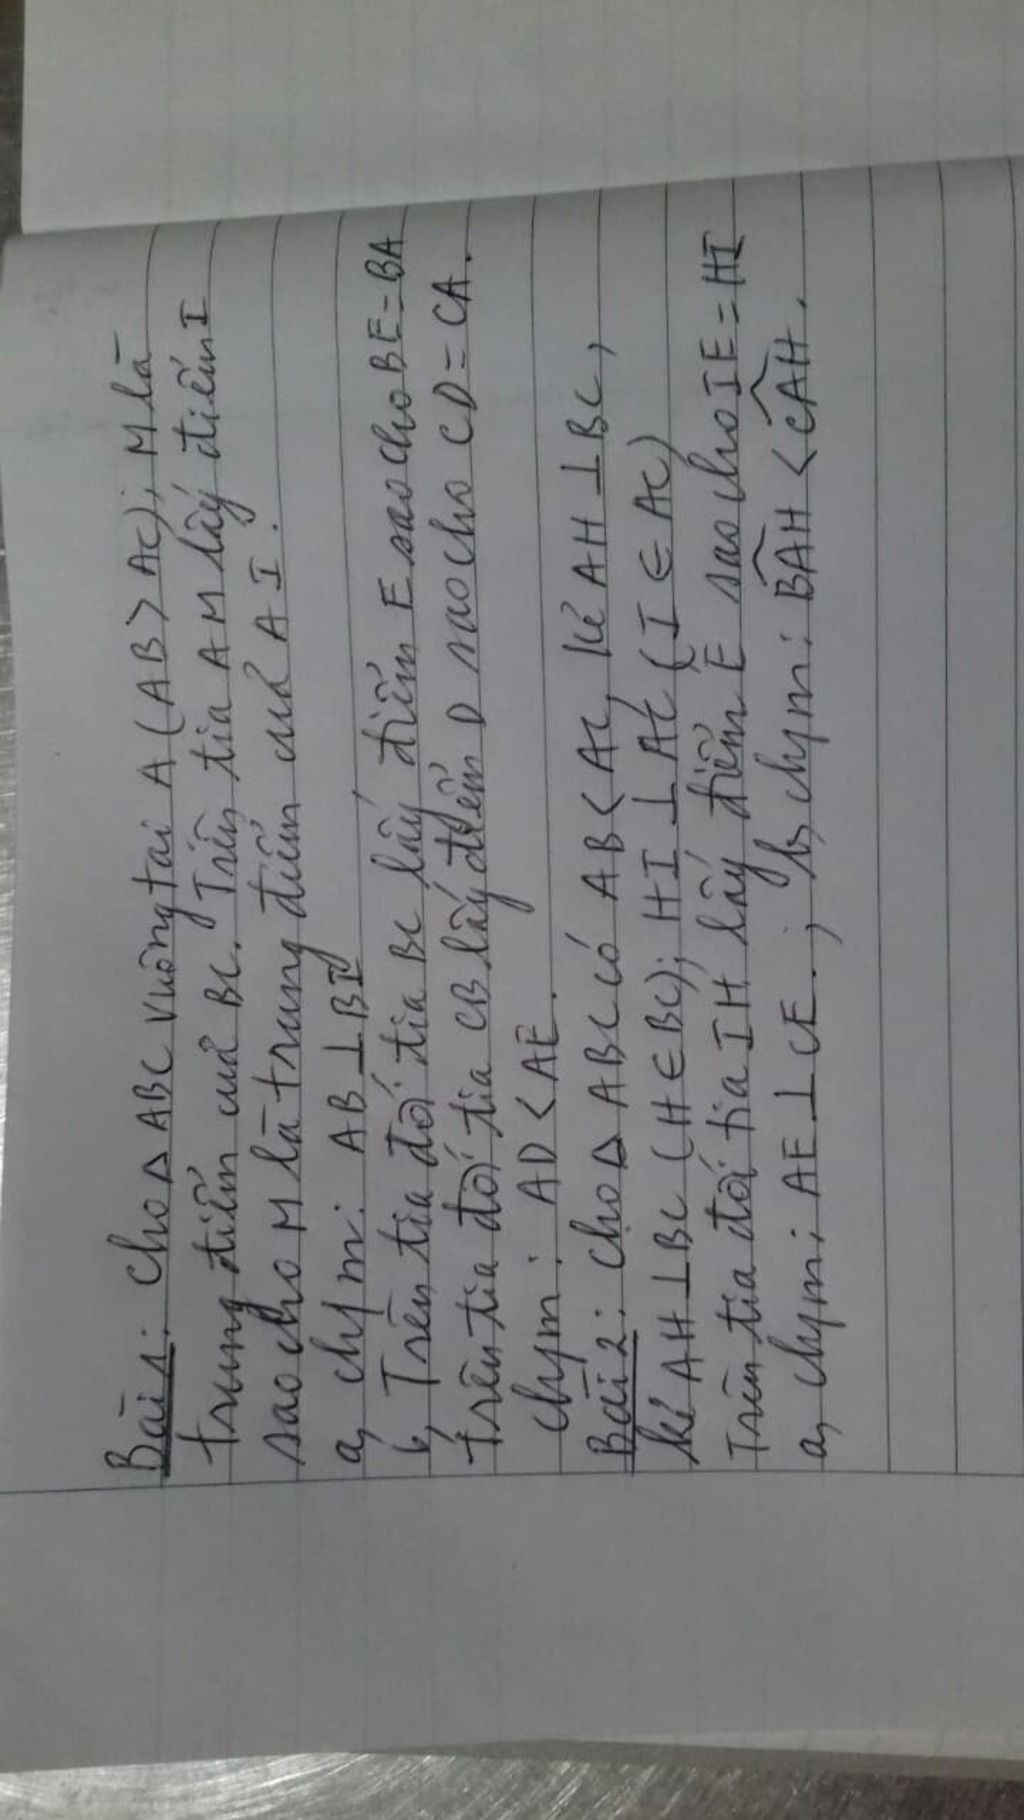 Bài 1: Cho Δ ABC vuông tại A (AB > AC); M là
trung điểm của BC. Trên tia AM lấy điểm I
sao cho M là trung điểm của AI.
a, chym: AB ⊥ BI
b, Trên tia đối tia BC lấy điểm E sao cho BE = BA
trên tia đối tia CB lấy điểm D sao cho CD = CA.
chym: AD < AE.
Bài 2: Cho Δ ABC có AB < AC, kẻ AH ⊥ BC,
kẻ AH ⊥ BC (H ∈ BC); HI ⊥ AC (I ∈ AC)
Trên tia đối tia IH lấy điểm E sao cho IE = HI
a, chym: AE ⊥ CE. ; b, chym: BAH < CAH.